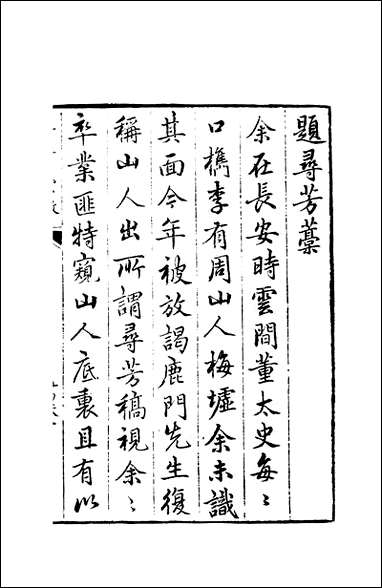 題尋芳藁
余在長安時雲間董太史每〻
口檇李有周山人梅墟余未識
其面今年被放謁鹿門先生復
稱山人出所謂尋芳稿視余〻
卒業匪特窺山人底裏且有以